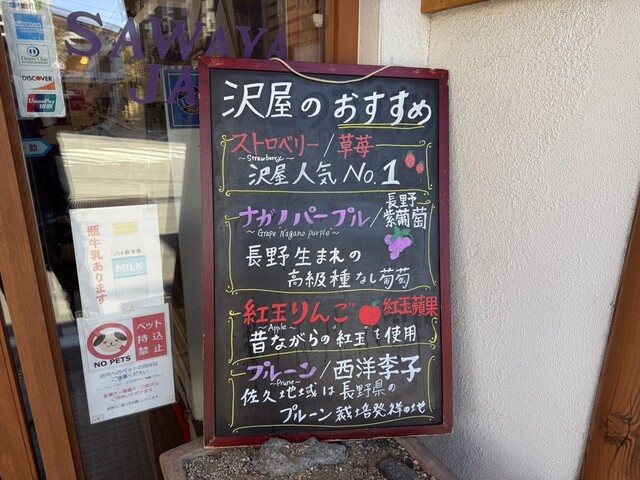 SAWAYA
JA
Diners Club
DISCOVER
UnionPay
動
沢屋のおすすめ
ストロベリー/草苺
~Strawberry~
沢屋人気No.1
ナガノパープル/長野紫葡萄
~Grape "Nagano purple"~
長野生まれの
高級種なし葡萄
紅玉りんご 紅玉蘋果
~Apple~
昔ながらの"紅玉"を使用
プルーン/西洋李子
~Prune~
佐久地域は長野県の
プルーン栽培発祥の地
瓶牛乳あります
八ヶ岳牛乳
MILK
ペット
持込
禁止
NO PETS
店内へのペットの同伴は
ご遠慮ください